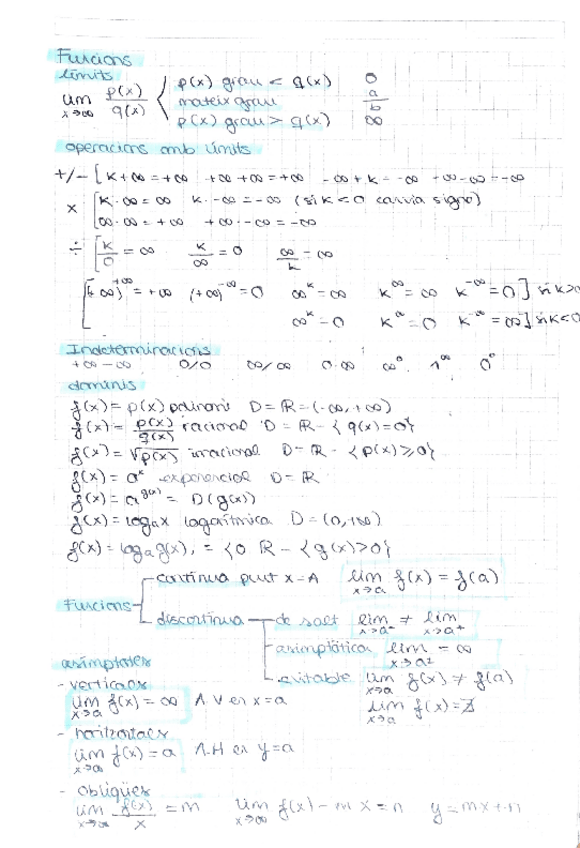 Funcions
límits
lim x→∞ p(x)/q(x) { p(x) grau < q(x) 0
mateix grau a/b
p(x) grau > q(x) ∞
operacions amb límits
+/- [ K+∞=+∞ +∞+∞=+∞ -∞+K=-∞ -∞-∞=-∞
x [ K·∞=∞ K·-∞=-∞ (si K<0 canvia signo)
∞·∞=+∞ +∞·-∞=-∞
÷ [ K/0=∞ K/∞=0 ∞/K=∞
[ (+∞)^+∞=+∞ (+∞)^-∞=0 ∞^K=∞ K^∞=∞ K^-∞=0 ] si K>0
∞^K=0 K^∞=0 K^-∞=∞ ] si K<0
Indeterminacions
+∞-∞ 0/0 ∞/∞ 0·∞ ∞^0 1^∞ 0^0
dominis
f(x)=p(x) polinomi D=ℝ=(-∞,+∞)
f(x)=p(x)/q(x) racional D=ℝ-{q(x)=0}
f(x)=√p(x) irracional D=ℝ-{p(x)≥0}
f(x)=a^x exponencial D=ℝ
f(x)=a^g(x)=D(g(x))
f(x)=log_a x logarítmica D=(0,+∞)
f(x)=log_a g(x), = {0 ℝ-{g(x)>0}
Funcions
contínua punt x=A lim x→a f(x)=f(a)
discontínua de salt lim x→a⁻ ≠ lim x→a⁺
asimptòtica lim x→a± = ∞
evitable lim x→a f(x)≠f(a)
lim x→a f(x)=∄
asímptotes
- verticals
lim x→a f(x)=∞ A.V en x=a
- horitzontals
lim x→∞ f(x)=a A.H en y=a
- obliqües
lim x→∞ f(x)/x=m lim x→∞ f(x)-mx=n y=mx+n